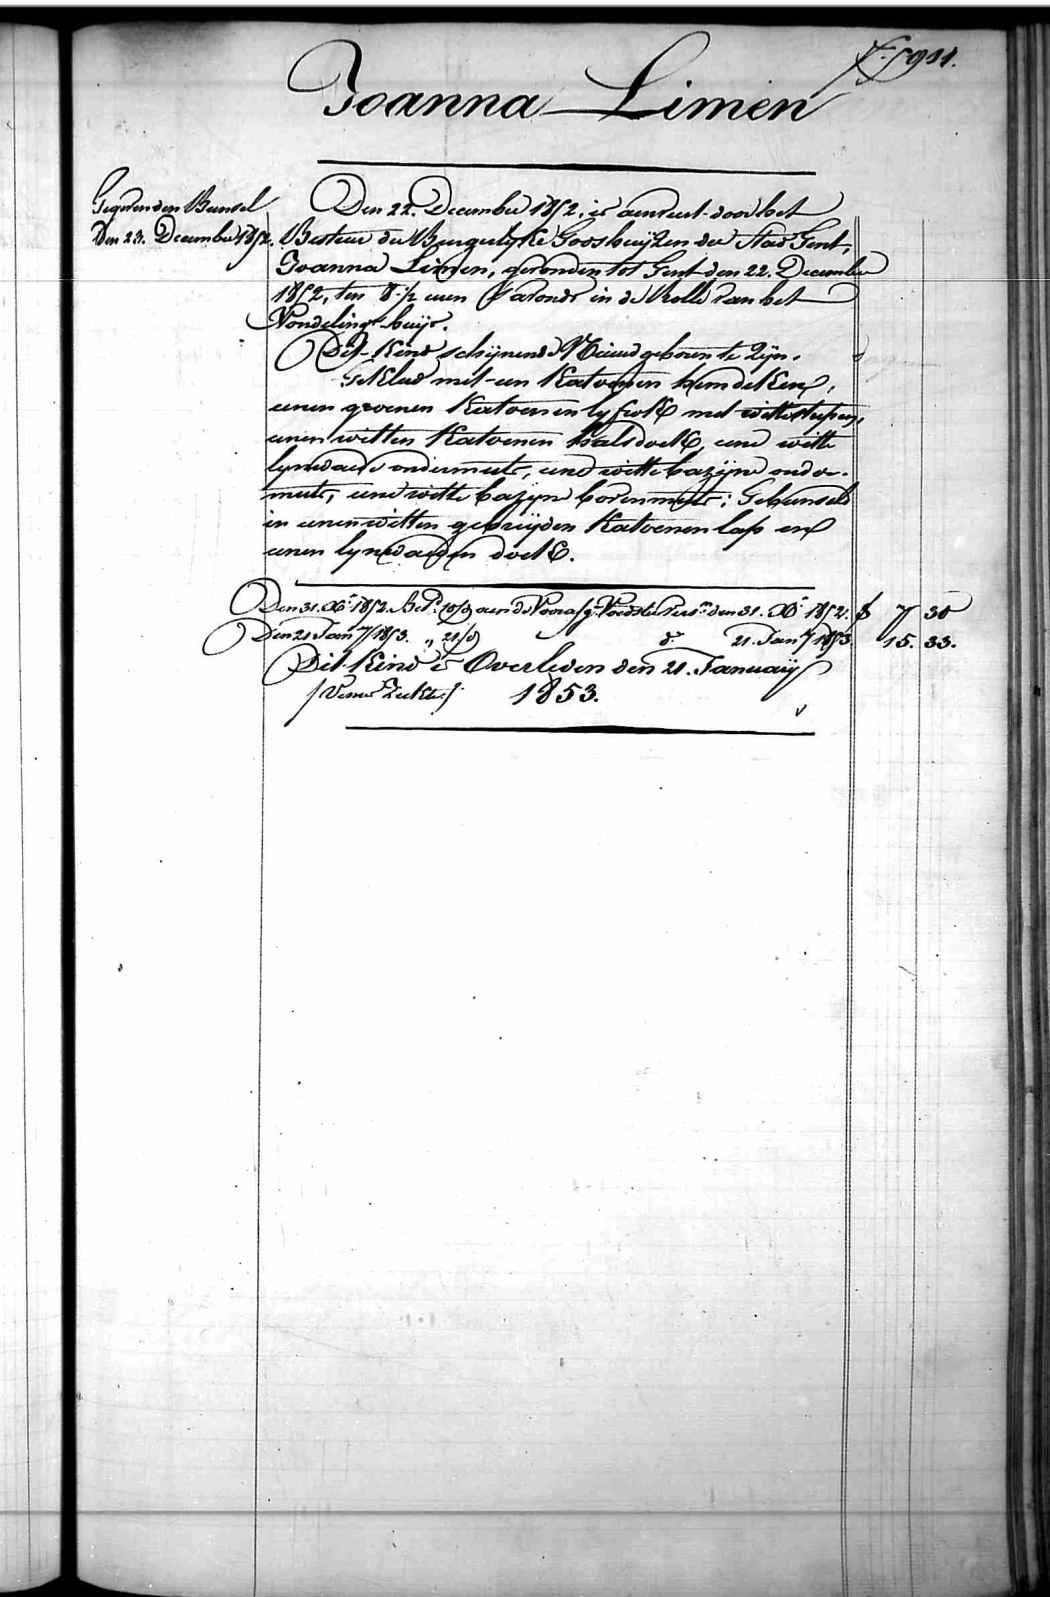 f. 5911.
Joanna Limen
Gegeven den Bunsel
den 23. December 1852.
Den 22. December 1852, is aenveert door het
Bestier der Burgerlyke Godshuijzen der Stad Gent,
Joanna Limen, gevonden tot Gent den 22. December
1852, ten 8 ½ uren 's avonds in de Rolle van het
Vondelings-huijs.
Dit Kind schijnende Nieuwgeboren te Zijn.
Gekleed met een Katoenen hemdeken,
eenen groenen Katoenen lyfrok met witte strepen,
eenen witten Katoenen halsdoek, eene witte
lynwaede ondermuts, eene witte bazijne onder-
muts, eene witte bazijne bovenmuts; Gebunseld
in eenen witten gebreijden Katoenen lap en
eenen lynwaeden doek.
Den 31. Xb. 1852. Bet. 10/d aen de Voorafg. Voedster Pens. den 31. Xb. 1852. f 7 30
Den 21 Jany 1853. " 21/d d.º 21. Jany 1853. 15. 33.
Dit Kind is Overleden den 21. Januarij
1853.